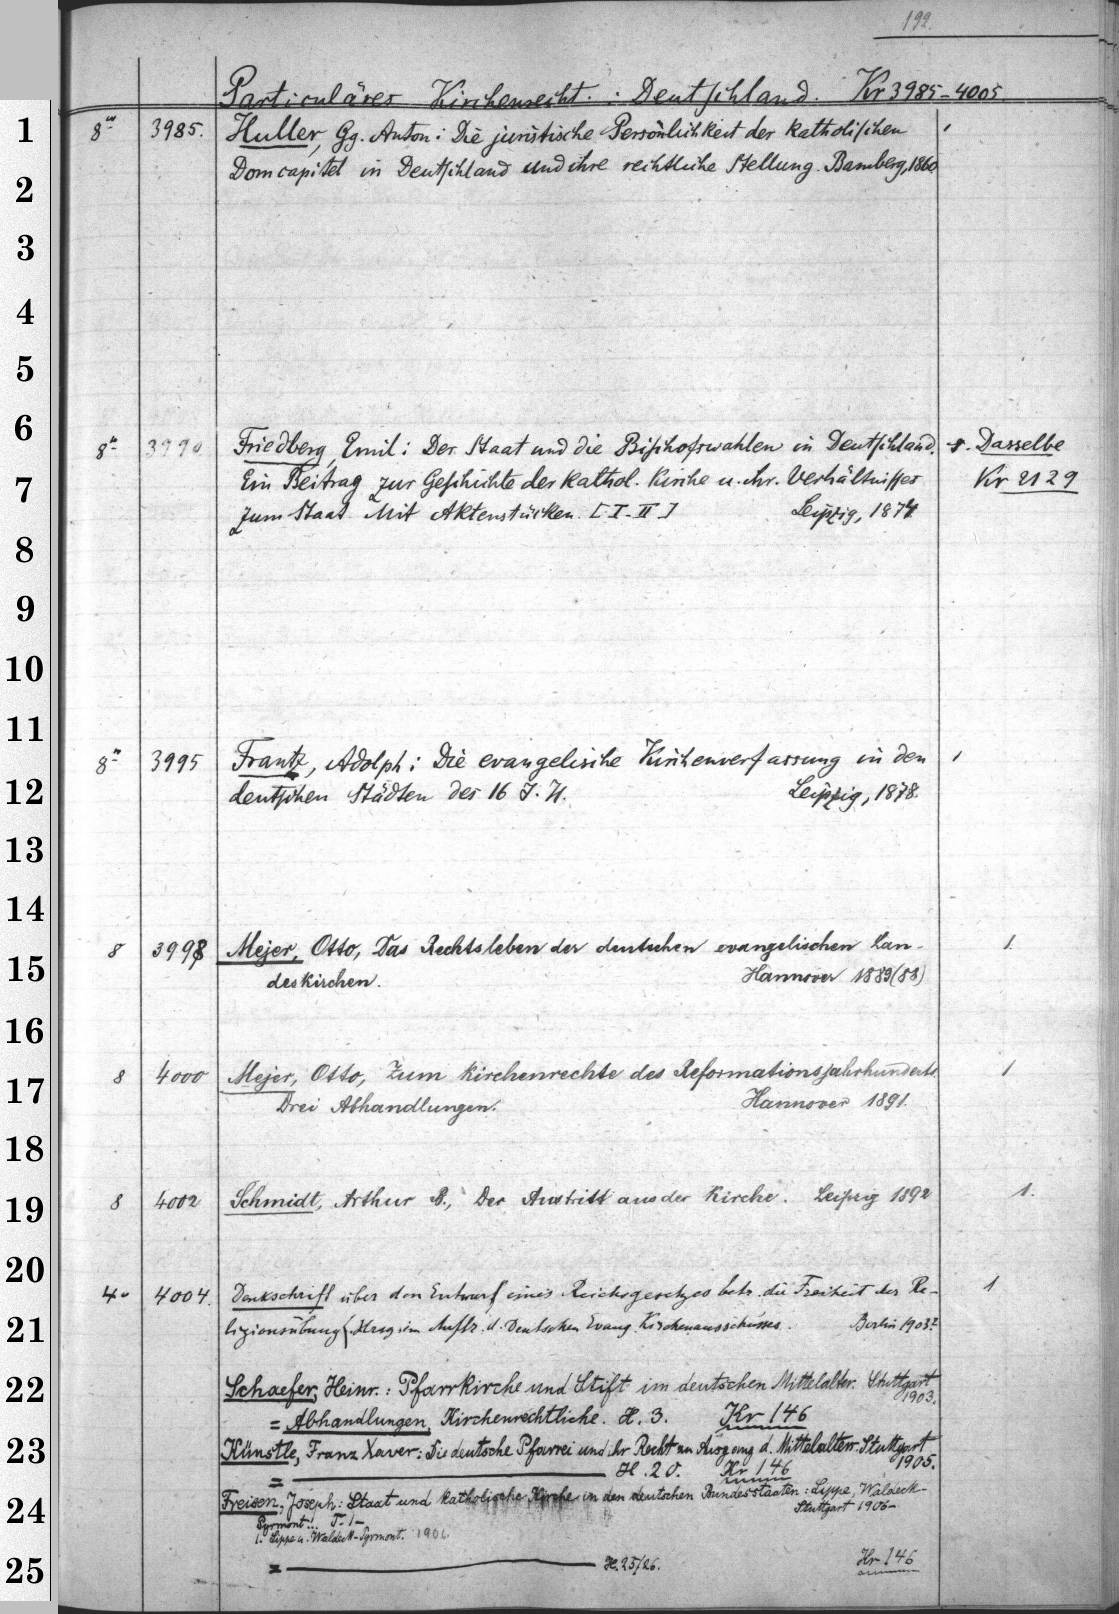 192.
Particuläres Kirchenrecht. : Deutschland. Kr 3985-4005
1 8° 3985. Huller, Gg. Anton: Die juristische Persönlichkeit der katholischen 1
Domcapitel in Deutschland und ihre rechtliche Stellung. Bamberg, 1860
2
3
4
5
6 8° 3990 Friedberg, Emil: Der Staat und die Bischofswahlen in Deutschland. Dasselbe
7 Ein Beitrag zur Geschichte der kathol. Kirche u. ihr. Verhältnisses Kr 2129
zum Staat. Mit Aktenstücken. [I-II] Leipzig, 1874
8
9
10
11
8° 3995 Frantz, Adolph: Die evangelische Kirchenverfassung in den 1
12 deutschen Städten des 16 J. H. Leipzig, 1878.
13
14
8 3998 Mejer, Otto, Das Rechtsleben der deutschen evangelischen Lan- 1.
15 deskirchen. Hannover 1889(88)
16
17 8 4000 Mejer, Otto, Zum Kirchenrechte des Reformationsjahrhunderts. 1
Drei Abhandlungen. Hannover 1891.
18
19 8 4002 Schmidt, Arthur B., Der Austritt aus der Kirche. Leipzig 1892 1.
20
4° 4004. Denkschrift über den Entwurf eines Reichsgesetzes betr. die Freiheit der Re- 1
21 ligionsübung. Hrsg. im Auftr. d. Deutschen Evang. Kirchenausschusses. Berlin 1903?
22 Schaefer, Heinr.: Pfarrkirche und Stift im deutschen Mittelalter. Stuttgart
1903.
= Abhandlungen, Kirchenrechtliche. H. 3. Kr 146
23 Künstle, Franz Xaver: Die deutsche Pfarrei und ihr Recht zu Ausgang d. Mittelalters. Stuttgart
1905.
= H. 20. Kr 146
24 Freisen, Joseph: Staat und katholische Kirche in den deutschen Bundesstaaten: Lippe, Waldeck-
Pyrmont!. T. 1- Stuttgart 1906-
1. Lippe u. Waldeck-Pyrmont. 1906
25 = H. 25/26. Kr 146